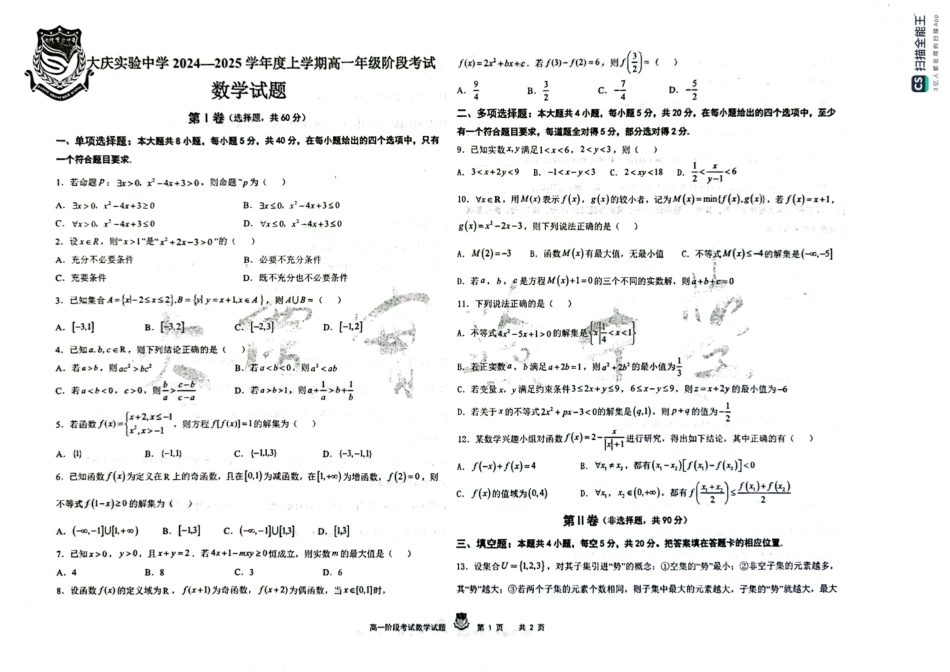 大庆实验中学 2024—2025 学年度上学期高一年级阶段考试
数学试题
第Ⅰ卷（选择题，共60分）
一、单项选择题：本大题共8小题，每小题5分，共40分，在每小题给出的四个选项中，只有
一个符合题目要求.
1．若命题P：∃x>0，x²−4x+3>0，则命题¬p为（　）
A．∃x>0，x²−4x+3≥0　B．∃x≤0，x²−4x+3≤0
C．∀x>0，x²−4x+3≤0　D．∀x≤0，x²−4x+3≤0
2．设x∈R，则“x>1”是“x²+2x−3>0”的（　）
A．充分不必要条件　B．必要不充分条件
C．充要条件　D．既不充分也不必要条件
3．已知集合A={x|−2≤x≤2},B={y|y=x+1,x∈A}，则A∪B=（　）
A．[−3,1]　B．[−3,2]　C．[−2,3]　D．[−1,2]
4．已知a,b,c∈R，则下列结论正确的是（　）
A．若a>b，则ac²>bc²　B．若a<b<0，则a²<ab
C．若a<b<0，c>0，则b/a>(c−b)/(c−a)　D．若a>b>1，则a+1/a>b+1/b
5．若函数f(x)={x+2,x≤−1 x²,x>−1，则方程f[f(x)]=1的解集为（　）
A．{1}　B．{−1,1}　C．{−1,1,3}　D．{−3,−1,1}
6．已知函数f(x)为定义在R上的奇函数，且在[0,1)为减函数，在[1,+∞)为增函数，f(2)=0，则
不等式f(1−x)≥0的解集为（　）
A．(−∞,−1]∪[1,+∞)　B．[−1,3]　C．(−∞,−1]∪[1,3]　D．[1,3]
7．已知x>0，y>0，且x+y=2．若4x+1−mxy≥0恒成立，则实数m的最大值是（　）
A．4　B．8　C．3　D．6
8．设函数f(x)的定义域为R，f(x+1)为奇函数，f(x+2)为偶函数，当x∈[0,1]时，
f(x)=2x²+bx+c．若f(3)−f(2)=6，则f(3/2)=（　）
A．9/4　B．3/2　C．−7/4　D．−5/2
二、多项选择题：本大题共4小题，每小题5分，共20分，在每小题给出的四个选项中，至少
有一个符合题目要求，每道题全对得5分，部分选对得2分.
9．已知实数x,y满足1<x<6，2<y<3，则（　）
A．3<x+2y<9　B．−1<x−y<3　C．2<xy<18　D．1/2<x/(y−1)<6
10．∀x∈R，用M(x)表示f(x)，g(x)的较小者，记为M(x)=min{f(x),g(x)}，若f(x)=x+1，
g(x)=x²−2x−3，则下列说法正确的是（　）
A．M(2)=−3　B．函数M(x)有最大值，无最小值　C．不等式M(x)≤−4的解集是(−∞,−5]
D．若a，b，c是方程M(x)+1=0的三个不同的实数解，则a+b+c=0
11．下列说法正确的是（　）
A．不等式4x²−5x+1>0的解集是{x|1/4<x<1}
B．若正实数a，b满足a+2b=1，则a²+2b²的最小值为1/3
C．若变量x，y满足约束条件3≤2x+y≤9，6≤x−y≤9，则z=x+2y的最小值为−6
D．若关于x的不等式2x²+px−3<0的解集是(q,1)，则p+q的值为−1/2
12．某数学兴趣小组对函数f(x)=2−x/(|x|+1)进行研究，得出如下结论，其中正确的有（　）
A．f(−x)+f(x)=4　B．∀x₁≠x₂，都有(x₁−x₂)[f(x₁)−f(x₂)]<0
C．f(x)的值域为(0,4)　D．∀x₁，x₂∈(0,+∞)，都有f((x₁+x₂)/2)≤(f(x₁)+f(x₂))/2
第Ⅱ卷（非选择题，共90分）
三、填空题：本题共4小题，每空5分，共20分。把答案填在答题卡的相应位置.
13．设集合U={1,2,3}，对其子集引进“势”的概念：①空集的“势”最小；②非空子集的元素越多，
其“势”越大；③若两个子集的元素个数相同，则子集中最大的元素越大，子集的“势”就越大，最大
高一阶段考试数学试题　第 1 页　共 2 页
CS 扫描全能王
3亿人都在用的扫描App